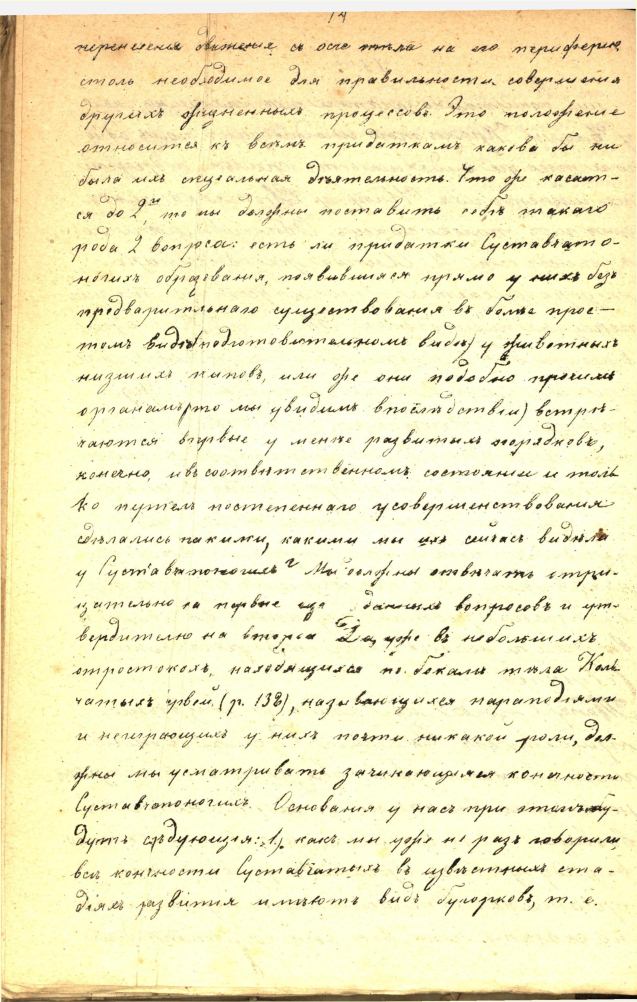 14
перенесенія движенія съ осе тѣла на его периферію,
столь необходимое для правильности совершенія
другихъ жизненныхъ процессовъ. Это положеніе
относится къ всѣмъ придаткамъ какова бы ни
была ихъ спеціальная дѣятельность. Что же касает-
ся до 2го, то мы должны поставить себѣ такого
рода 2 вопроса: есть ли придатки Суставчато-
ногихъ образованія, появившіяся прямо у нихъ безъ
предварительнаго существованія въ болѣе прос-
томъ видѣ (подготовительномъ видѣ) у животныхъ
низшихъ типовъ, или же они подобно прочимъ
органамъ (что мы увидимъ впослѣдствіи) встрѣ-
чаются впервые у менѣе развитыхъ порядковъ,
конечно, и въ соотвѣтственномъ состояніи и толь
ко путемъ постепеннаго усовершенствованія
сдѣлались такими, какими мы ихъ сейчасъ видѣли
у Суставчатоногихъ? Мы должны отвѣчать отри-
цательно на первые изъ данныхъ вопросовъ и ут-
вердительно на вторые и уже въ небольшихъ
отросткахъ, находящихся по бокамъ тѣла Коль
чатыхъ червей (р. 138), называющихся параподіями
и неиграющихъ у нихъ почти никакой роли, дол-
жны мы усматривать зачинающіяся конечности
Суставчатоногихъ. Основанія у насъ при этомъ бу-
дутъ слѣдующія: 1) какъ мы уже не разъ говорили,
всѣ конечности Суставчатыхъ въ извѣстныхъ ста-
діяхъ развитія имѣютъ видъ бугорковъ, т. е.